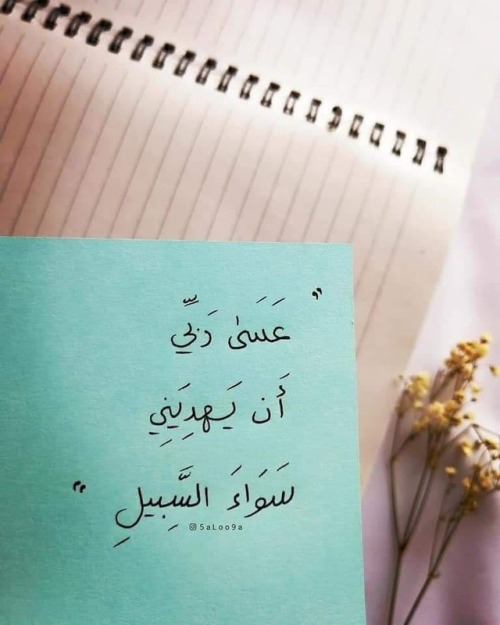 " عَسَىٰ رَبِّي
أَن يَهدِيَنِي
سَوَاءَ السَّبِيلِ "
5aLoo9a